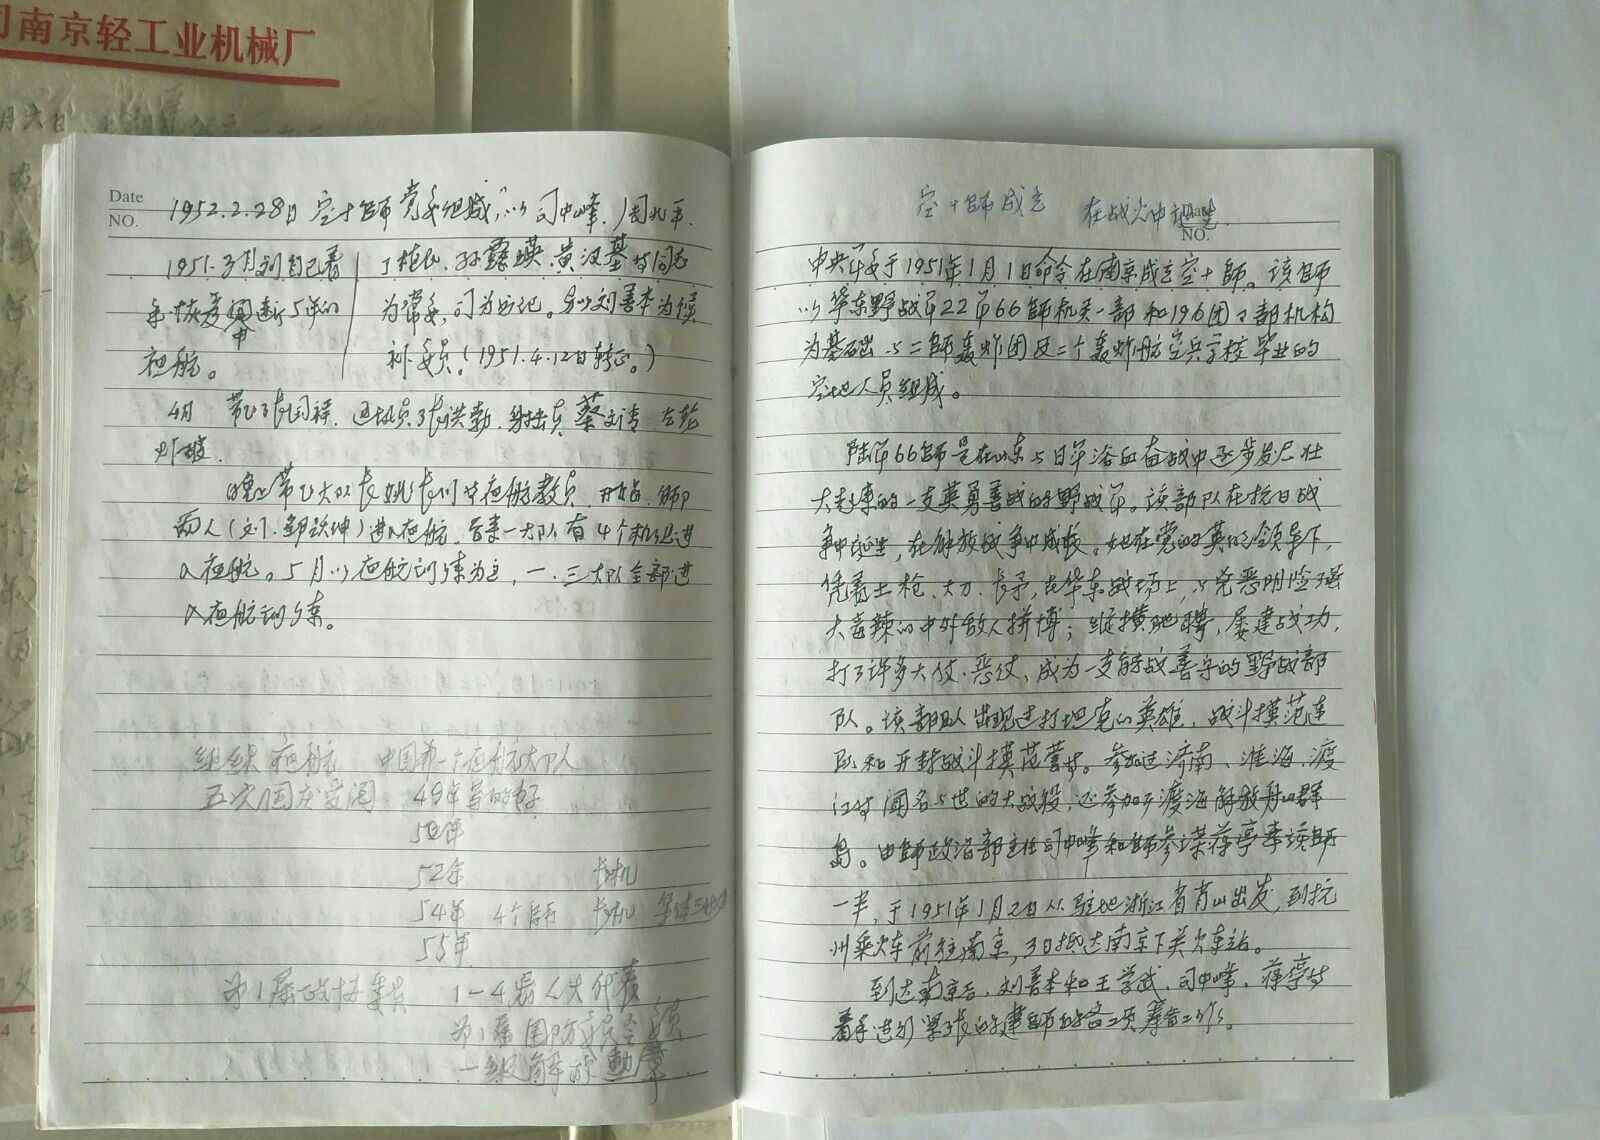 南京轻工业机械厂
月六日
Date
NO.
1952.2.28日 空十师党委组成,以司中峰、周北平、
丁 、孙露瑛、黄汉基等同志
为常委,司为书记。另以刘善本为候
补委员。(1951.4.12日转正。)
1951.3月刘自己着
手恢复 中断5年的
夜航。
4月 带飞张同禄、通讯员张洪勤、射击员蔡文清
炸
晚上带飞大队长姚长川等夜航教员、开始、师
两人(刘、邹跃坤)进入夜航。后来一大队有4个机组进
入夜航。5月以夜航训练为主,一、三大队全部进
入夜航训练。
组织夜航 中国第一个夜航大队人
五次国庆受阅 49年
50年
52年 长机
54年 4个师 长机
55年
第1届政协委员 1-4届人大代表
第1届国防委员会委员
一级解放勋章
空十师成立 在战火中
Date
NO.
中央军委于1951年1月1日命令在南京成立空十师。该师
以华东野战军22军66师机关一部和196团 部机构
为基础与二师轰炸团及二个轰炸航空兵学校毕业的
空地人员组成。
陆军66师是在山东与日军浴血奋战中逐步发展壮
大起来的一支英勇善战的野战军。该部队在抗日战
争中诞生,在解放战争中成长。她在党的英明领导下,
凭着土枪、大刀、长矛,在华东战场上,与凶恶阴险强
大毒辣的中外敌人拼搏;纵横驰骋,屡建战功,
打了许多大仗、恶仗、成为一支能战善守的野战部
队。该部队出现过打坦克的英雄、战斗模范连
队和开封战斗模范营等。参加过济南、淮海、渡
江等闻名与世的大战役,还参加了渡海解放舟山群
岛。由师政治部主任司中峰和师参谋蒋亭率该师
一半,于1951年1月2日从驻地浙江省萧山出发,到杭
州乘火车前往南京,3日抵达南京下关火车站。
到达南京后,刘善本和王学武、司中峰、蒋亭等
着手进行紧张的建师的各项筹备工作。